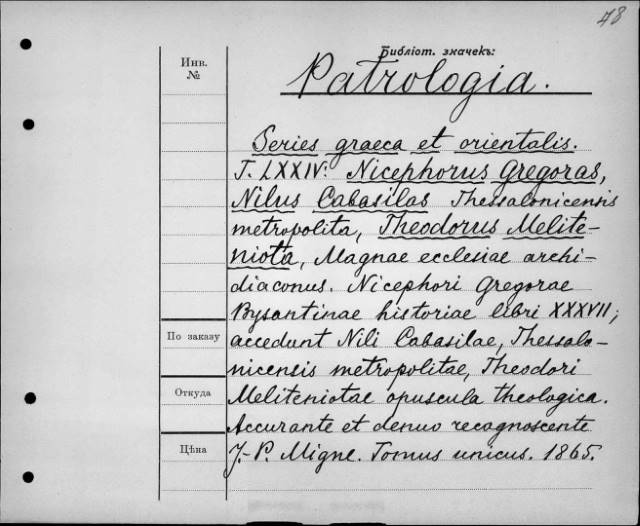 48
Библіот. значекъ:
Инв.
№
Patrologia.
Series graeca et orientalis.
T. LXXIV: Nicephorus Gregoras,
Nilus Cabasilas Thessalonicensis
metropolita, Theodorus Melite-
niota, Magnae ecclesiae archi-
diaconus. Nicephori Gregorae
Bysantinae historiae libri XXXVII;
По заказу
accedunt Nili Cabasilae, Thessalo-
nicensis metropolitae, Theodori
Откуда
Meliteniotae opuscula theologica.
Accurante et denuo recognoscente
Цѣна
J.-P. Migne. Tomus unicus. 1865.